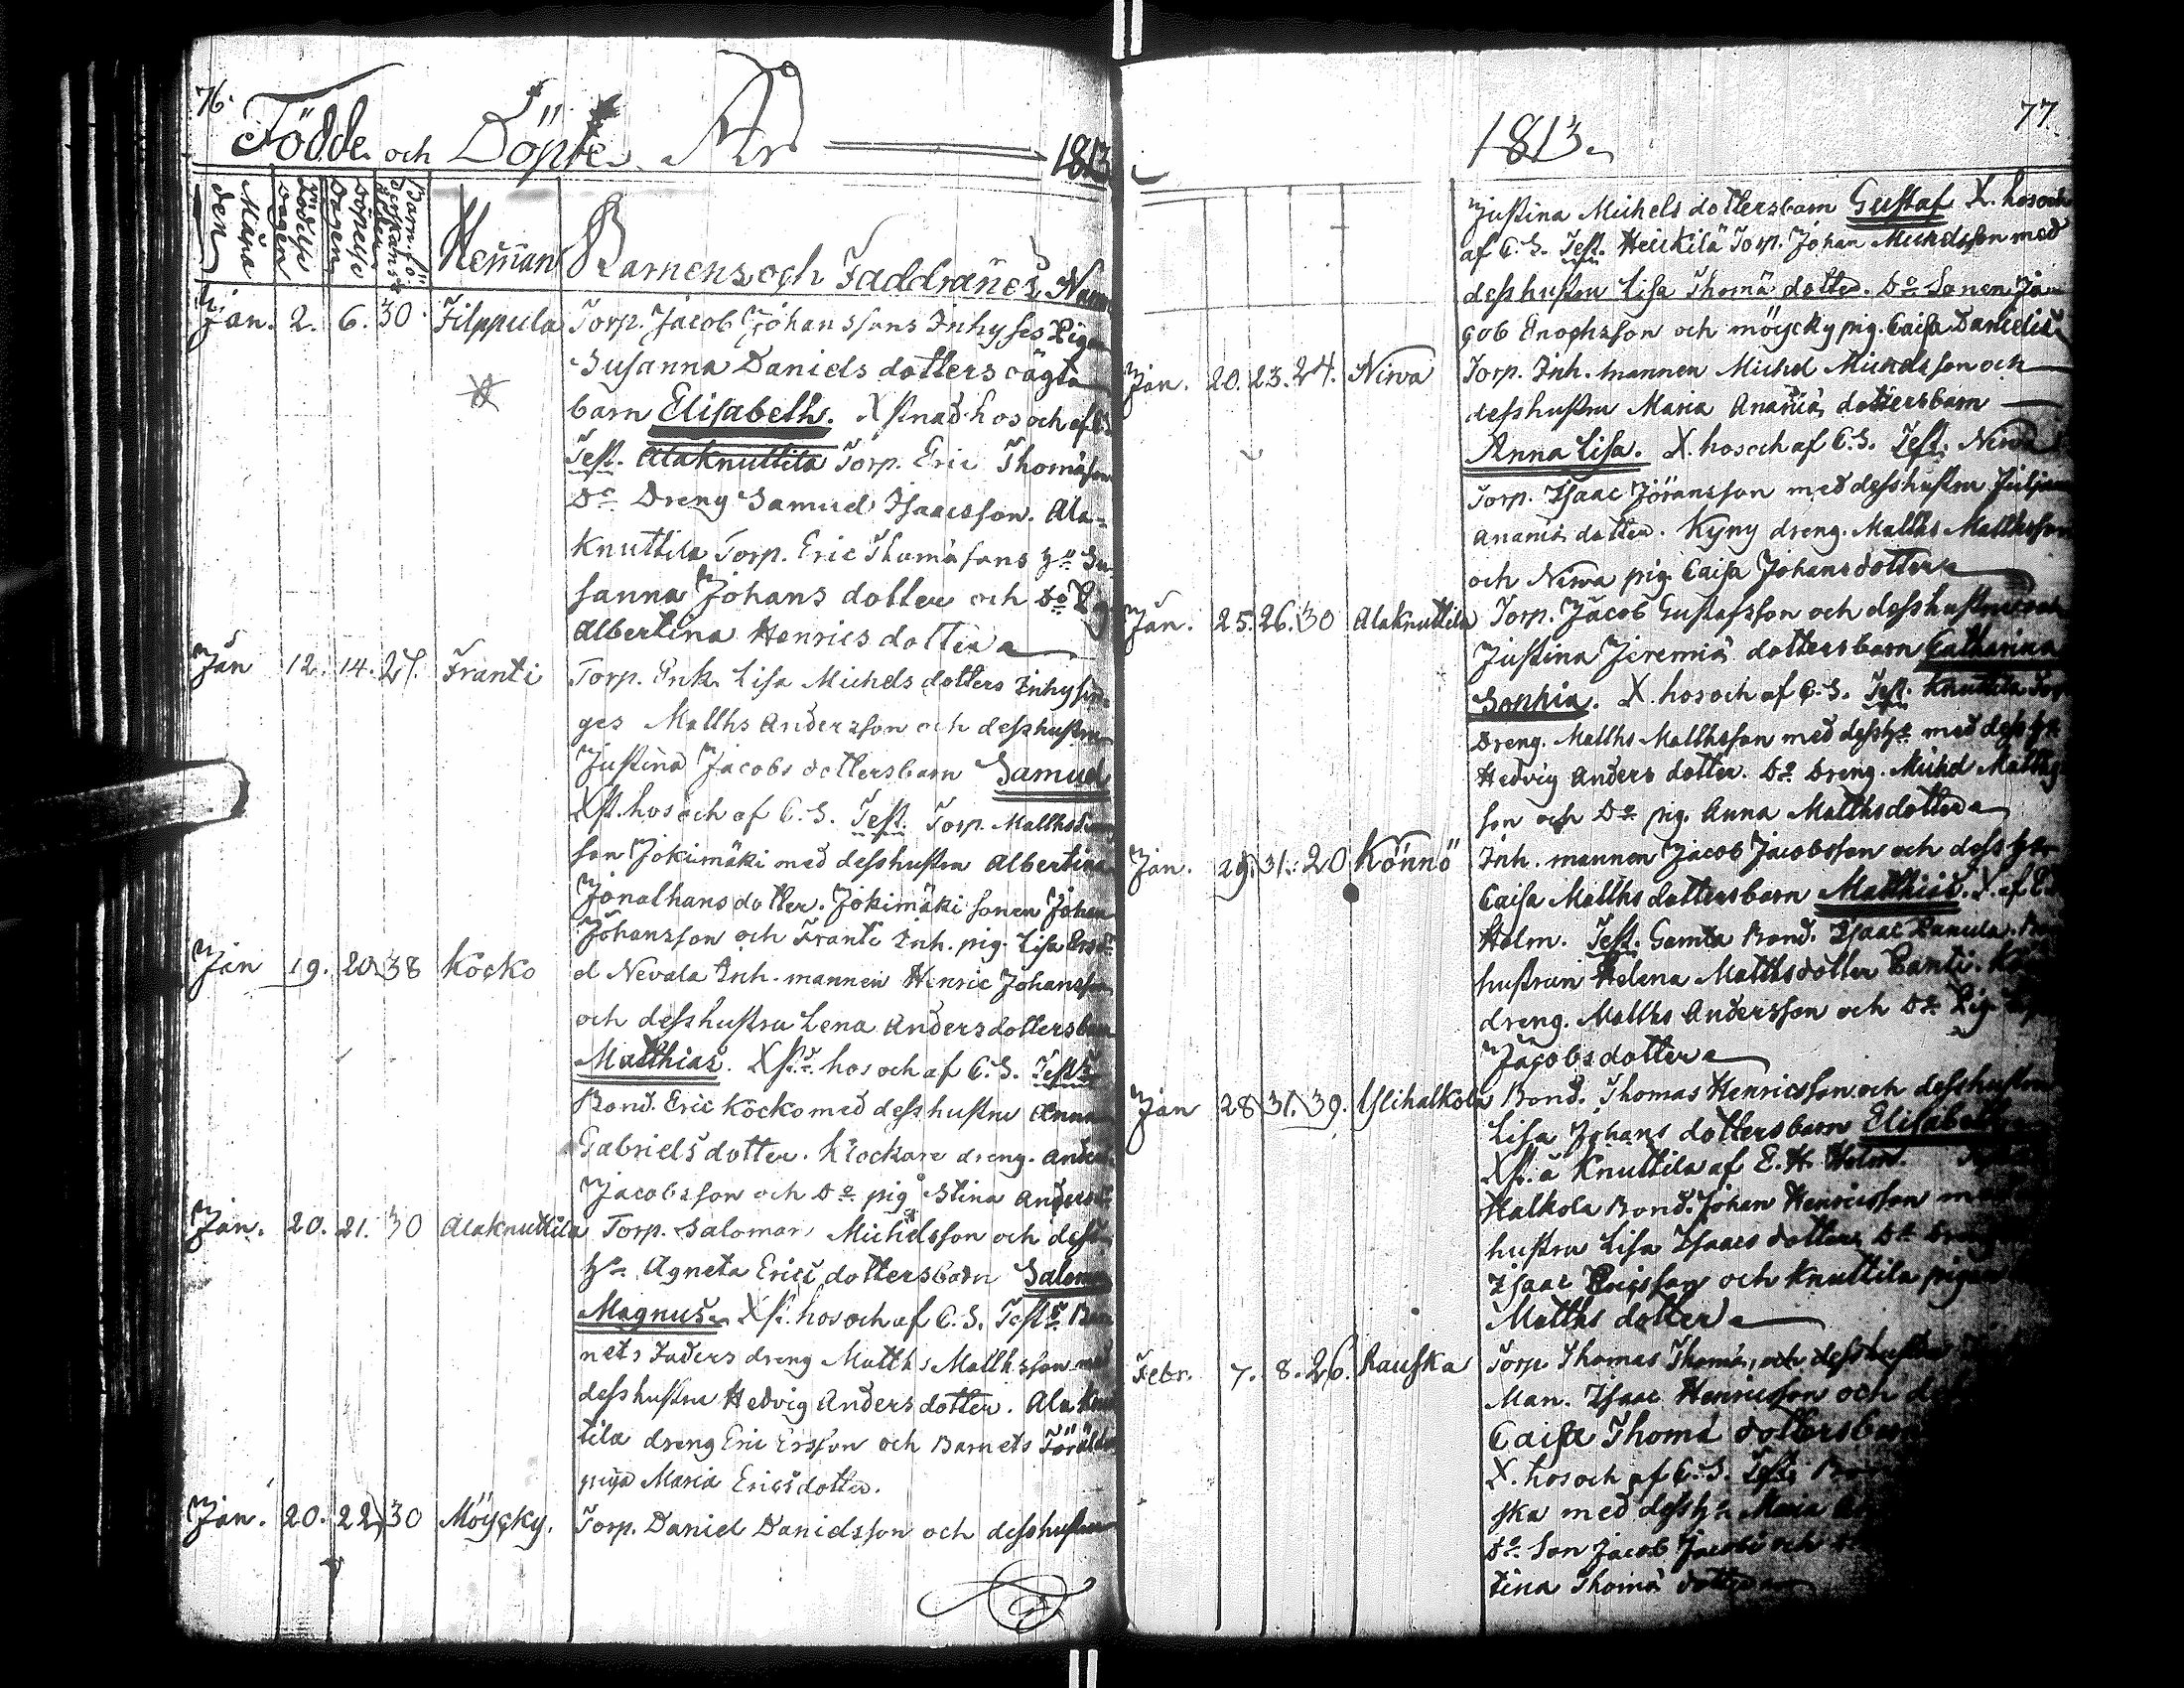 76.
Födde och Döpte År 1813
Måna
den
Födelse
Dagen
Döpelse
Dagen
Barnfö
derskans
ålder
Hem̄an
Barnens och Faddrarnes Namn
Jan. 2. 6. 30. Filppula Torp. Jacob Johanssons Inhyses Pigan
Susanna Daniels dotters oägta
barn Elisabeth. Xstnad hos och af C.S.
Test. Alaknuttila Torp. Eric Thomasson
Do Dreng Samuel Isaacsson. Ala-
knuttila Torp. Eric Thomasons Hu Su-
sanna Johans dotter och Do
Albertina Henrics dotter
Jan 12. 14. 27. Franti Torp. Enk. Lisa Michels dotters Inhysin-
ges Matths Andersson och desshustru
Justina Jacobs dottersbarn Samuel
Xst. hos och af C. S. Test. Torp. Matths
son Jokimäki med desshustru Albertina
Jonathansdotter. Jokimäki sonen Johan
Johansson och Franti Inh. pig. Lisa
Jan 19. 20. 38 Köcko d Nevala Inh. mannen Henric Johansson
och desshustru Lena Andersdottersbarn
Matthias. Xst. hos och af C. S. Test.
Bond. Eric Köcko med desshustru Anna
Gabriels dotter. Klockare dreng. Anders
Jacobsson och Do pig Stina Andersd.
Jan. 20. 21. 30 Alaknuttila Torp. Salomon Michelsson och dess
Hu Agneta Erici dottersbarn Salomon
Magnus. Xst. hos och af C. S. Test. Bar
nets Faders dreng Matths Matthsson med
desshustru Hedvig Andersdotter. Alaknut
tila dreng Eric Ersson och Barnets Föräldrars
piga Maria Ericsdotter.
Jan. 20. 22. 30 Möycky. Torp. Daniel Danielsson och desshustru
77.
1813.
Justina Michels dottersbarn Gustaf X. hos och
af C. S. Test. Heickilä Torp. Johan Michelsson med
desshustru Lisa Thomä dotter. Do Sonen Ja-
cob Enochsson och möycky pig. Caisa Danielsd.
Jan. 20. 23. 24. Nirva Torp. Inh. mannen Michel Michelsson och
desshustru Maria Ananiä dottersbarn
Anna Lisa. X. hos och af C. S. Test. Nirva
Torp. Isaac Jöransson med desshustru Juliana
Ananiä dotter. Kyny dreng. Matths Matthsson
och Nirva pig. Caisa Johansdotter
Jan. 25. 26. 30 Alaknuttila Torp. Jacob Gustafsson och desshustru
Justina Jeremiä dottersbarn Catharina
Sophia. X hos och af C. S. Test. Knuttila Torp
Dreng. Matths Matthsson med dess Hu med dess Hu
Hedvig Anders dotter. Do Dreng. Michel Matths
son och Do pig. Anna Matthsdotter
Jan. 29. 31. 20 Könnö Inh. mannen Jacob Jacobsson och dess Hu
Caisa Matths dottersbarn Matthias. X af E.
Holm. Test. Gamla Bond. Isaac
hustrun Helena Matthsdotter Panti.
dreng. Matths Andersson och Do Pig
Jacobsdotter
Jan 28 31. 39. Ylihalkola Bond. Thomas Henricsson och desshustru
Lisa Johans dottersbarn Elisabeth
Xst. å Knuttila af E. H. Holm.
Halkola Bond. Johan Henricsson med
hustru Lisa Isaacs dotter Do Dreng
Isaac Ericsson och Knuttila pigan
Matths dotter
Febr. 7. 8. 26. Rauska Torp Thomas Thomä, och desshustru
Man. Isaac Henricsson och
Caisa Thomä dottersbarn
X. hos och af C. S. Test.
ska med dess Hu Maria
Do Son Jacob Jacobi och
tina Thomä dotter